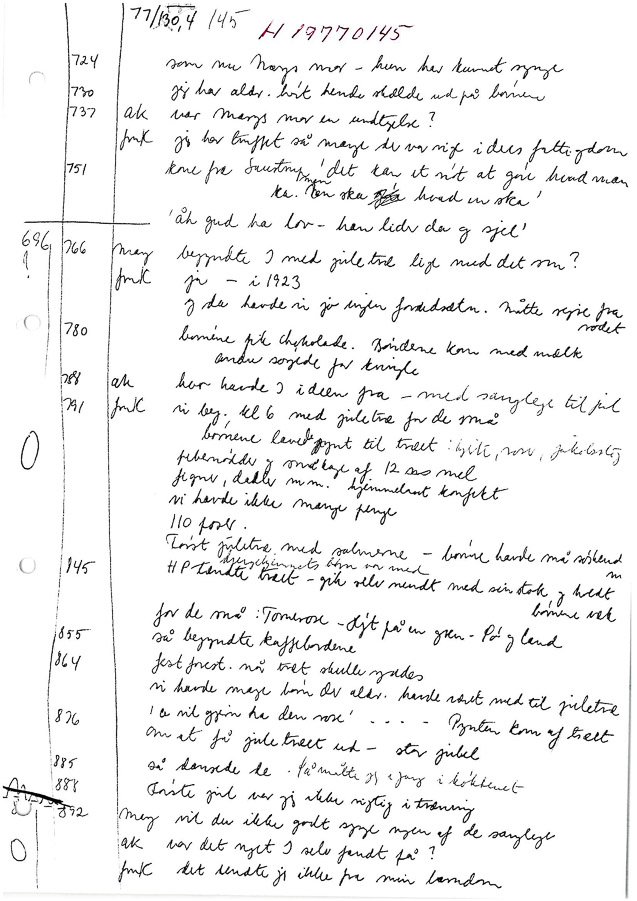 77/130,4 /45
H 19770145
724 som nu Marys mor – hun har kunnet synge
730 jeg har aldr. hört hende skælde ud på börnene
737 ak var Marys mor en undtgelse?
fmK jeg har truffet så mange der var rige i deres fattigdom
751 kone fra 'det kan et nit at göre hvad man
ka. men ska hvad en ska'
'åh gud ha lov – han lider da g sjel'
696 ? 766 may begyndte I med juletræ lige med det sm?
fmK ja – i 1923
g da havde vi jo ingen forsædsætn. Måtte rejse fra rodet
780 börnene fik chokolade. Böndene kom med mælk
andre sögede for kringle
788 ak hvor havde I ideen fra – med sanglege til jul
791 fmK vi beg. kl 6 med juletræ for de små
börnene lavede pynt til træet : hjerte, rose,
pebernödder g småkage af 12 mel
figner, dadler m.m. hjemmelavet konfekt
vi havde ikke mange penge
110 poser.
Först juletræ med salmerne – börne havde små
845 HP tændte træet – gik selv rundt med sin stok g
börnene væk
for de små : Tornerose – Höjt på en gren – På g land
855 så begyndte kaffebordene
864 fest forest. når træt skulle rystes
vi havde mage börn der aldr. havde været med til juletræ
876 'a vil gjern ha den rose' . . . . – Pynten kom af træet
om at få juletræet ud – stor jubel
885 så dansede de . På måtte jeg i gang i kökkenet
888 Förste jul var jeg ikke rigtig i træning
892 may vil du ikke godt synge nogen af de sanglege
ak var det noget I selv fandt på?
fmK det kendte jeg ikke fra min barndom